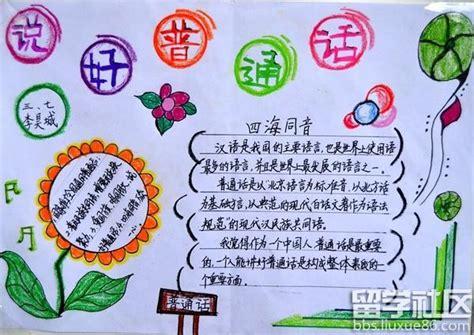 说好普通话
三、七
四海同音
汉语是我国的主要语言,也是世界上使用语
最多的语言,并且是世界上最发展的语言之一。
普通话是以北京语言为标准音,以北方话
为基础语言,以典范的现代白话文著作为语法
规范"的现代汉民族共同语。
我觉得作为一个中国人,普通话是最重要
的,一个人能讲好普通话是构成整体素质的一
个重要方面。
普通话
留学社区
bbs.liuxue86.com